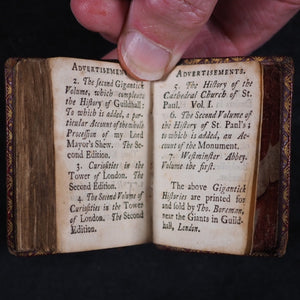 ADVERTISEMENTS.
2. The second Gigantick
Volume, which compleats
the History of Guildhall:
To which is added, a par-
ticular Account of the whole
Procession of my Lord
Mayor's Shew. The Se-
cond Edition.
3. Curiosities in the
Tower of London. The
Second Edition.
4. The Second Volume of
Curiosities in the Tower
of London. The Second
Edition.
ADVERTISEMENTS.
5. The History of the
Cathedral Church of St.
Paul. Vol. I.
6. The Second Volume of
the History of St. Paul's:
To which is added, an Ac-
count of the Monument.
7. Westminster Abbey.
Volume the first.
The above Gigantick
Histories are printed for
and sold by Tho. Boreman,
near the Giants in Guild-
hall, London.